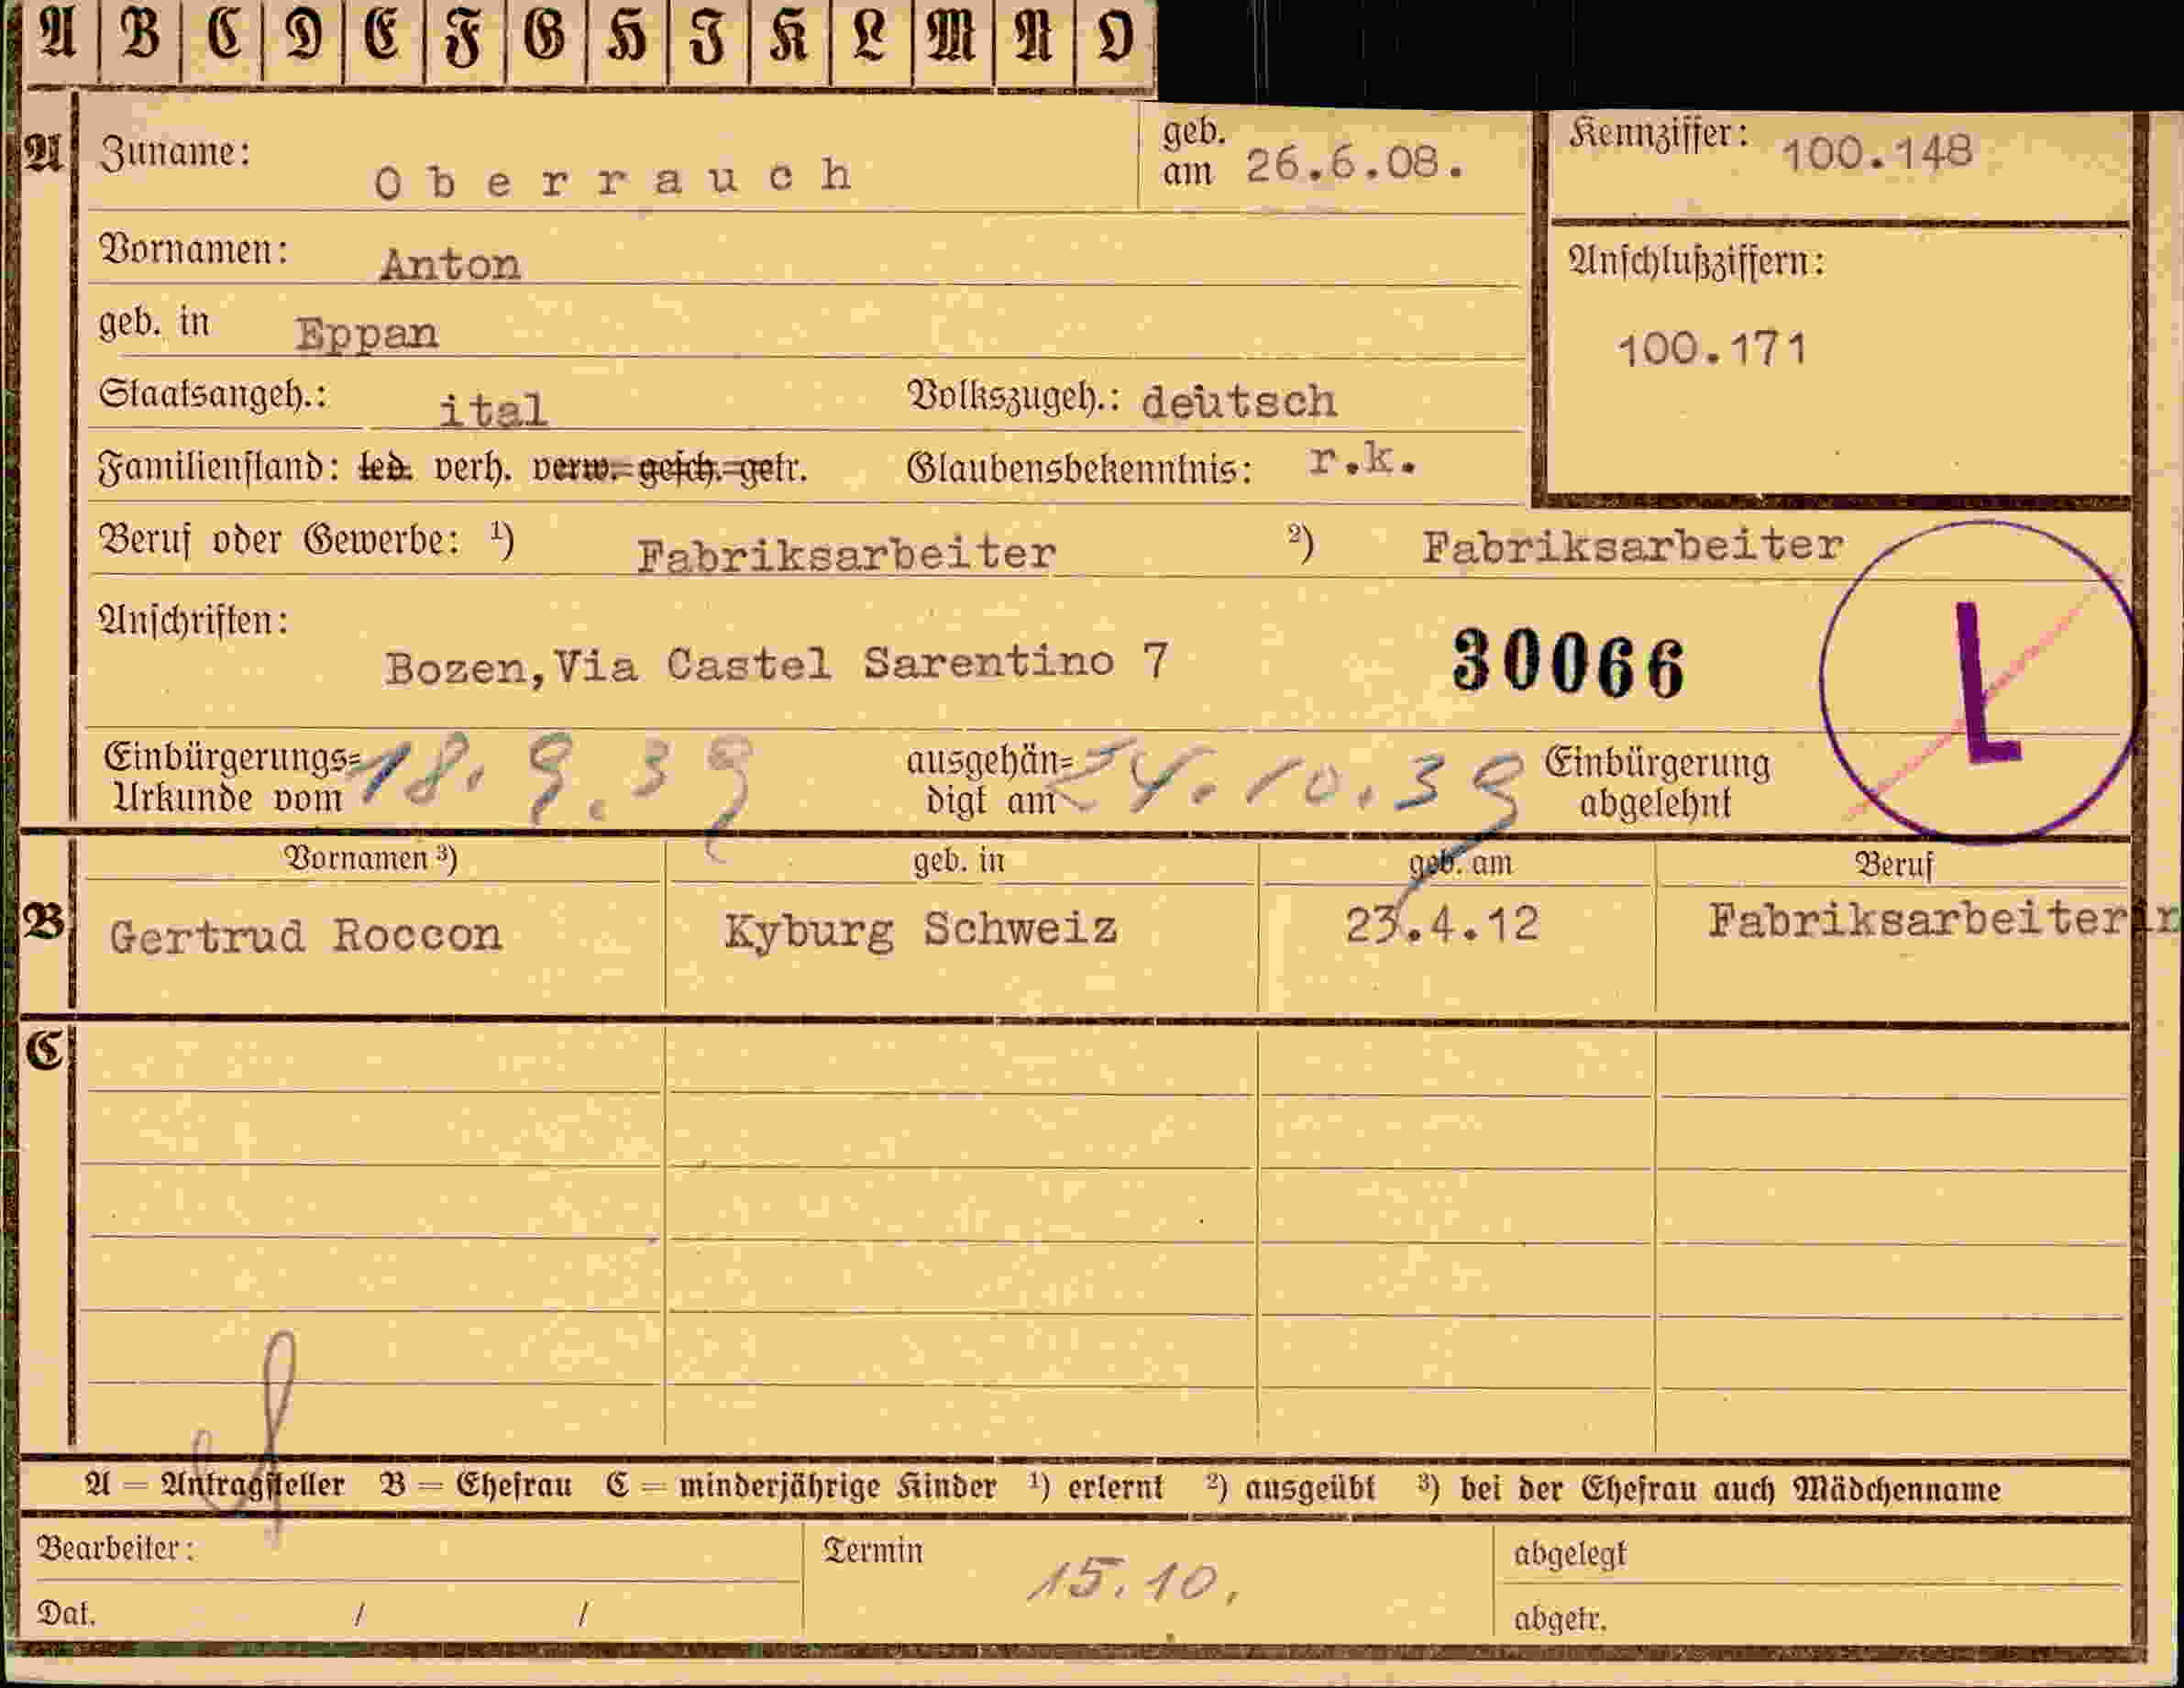 A B C D E F G H I K L M N O
A Zuname: Oberrauch geb. am 26.6.08. Kennziffer: 100.148
Vornamen: Anton Anschlußziffern:
geb. in Eppan 100.171
Staatsangeh.: ital Volkszugeh.: deutsch
Familienstand: led. verh. verw. gesch. getr. Glaubensbekenntnis: r.k.
Beruf oder Gewerbe: 1) Fabriksarbeiter 2) Fabriksarbeiter
Anschriften:
Bozen,Via Castel Sarentino 7 30066 L
Einbürgerungs=
Urkunde vom 18.9.39 ausgehän=
digt am 24.10.39 Einbürgerung
abgelehnt
Vornamen 3) geb. in geb. am Beruf
B Gertrud Roccon Kyburg Schweiz 23.4.12 Fabriksarbeiterin
C
A = Antragsteller B = Ehefrau C = minderjährige Kinder 1) erlernt 2) ausgeübt 3) bei der Ehefrau auch Mädchenname
Bearbeiter: Termin 15.10. abgelegt
Dat. / / abgetr.